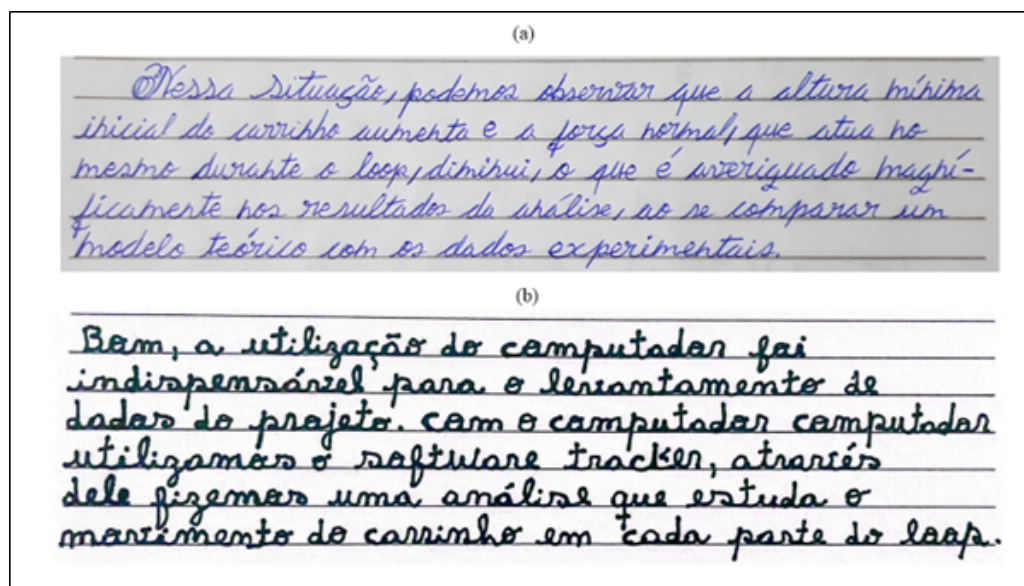 (a)
Nessa situação, podemos observar que a altura mínima
inicial do carrinho aumenta e a força normal, que atua no
mesmo durante o loop, diminui, o que é averiguado magní-
ficamente nos resultados da análise, ao se comparar um
modelo teórico com os dados experimentais.
(b)
Bom, a utilização do computador foi
indispensável para o levantamento de
dados do projeto. com o computador computador
utilizamos o software tracker, através
dele fizemos uma análise que estuda o
movimento do carrinho em cada parte do loop.